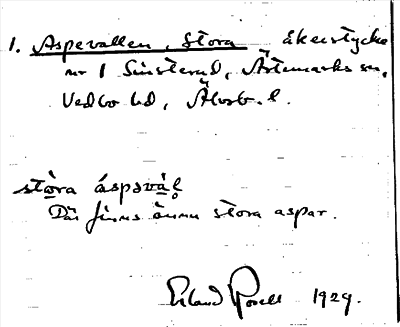 1. Aspevallen, Stora åkerstycke
nr 1 Sinsterud, Ärtemarks sn,
Vedbo hd, Älvsb. l.
stòra áspəvàḷ
Där finns ännu stora aspar.
Erland Rosell 1929.